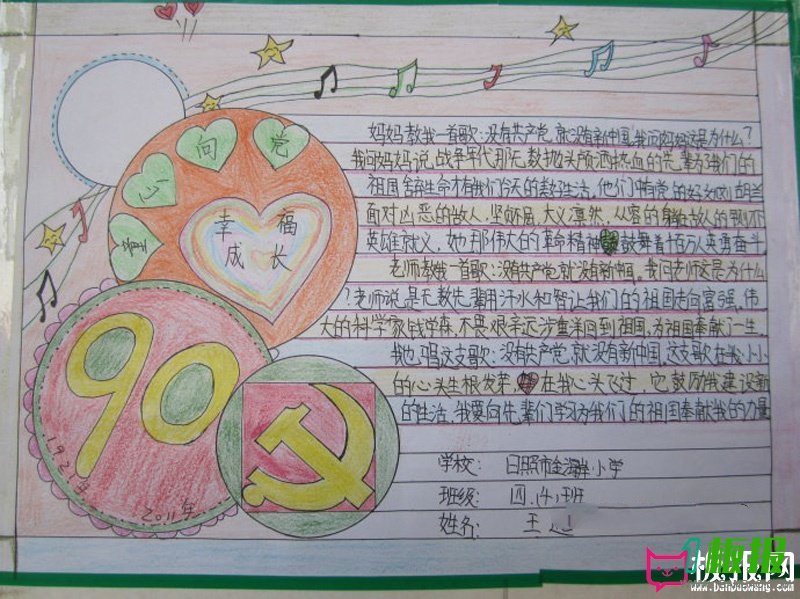 童
心
向
党
幸福
成长
90
1921年
2011年
妈妈教我一首歌:没有共产党,就没有新中国,我问妈妈这是为什么?
我问妈妈说,战争年代那无数抛头颅洒热血的先辈为了我们的
祖国 生命才有我们今天的 生活。他们中有党的好女儿刘胡兰
面对凶恶的敌人,坚 不屈,大义凛然,从容的 敌人的
英雄就义,她那伟大的革命精神鼓舞着千百万人英勇奋斗
老师教我一首歌:没有共产党就没有新中国。我问老师这是为什么
?老师说是无数先辈用汗水和智 让我们的祖国走向富强,伟
大的科学家钱学森,不畏艰辛远涉重洋回到祖国,为祖国奉献了一生。
我也唱这支歌:没有共产党,就没有新中国,这支歌在我小小
的心头生根发芽, 在我心头飞过,它鼓励我建设新
的生活,我要向先辈们学习为我们的祖国奉献我的力量
学校: 日照市金海岸小学
班级: 四.14.班
姓名: 王
板报
板报网
www.banbaowang.com